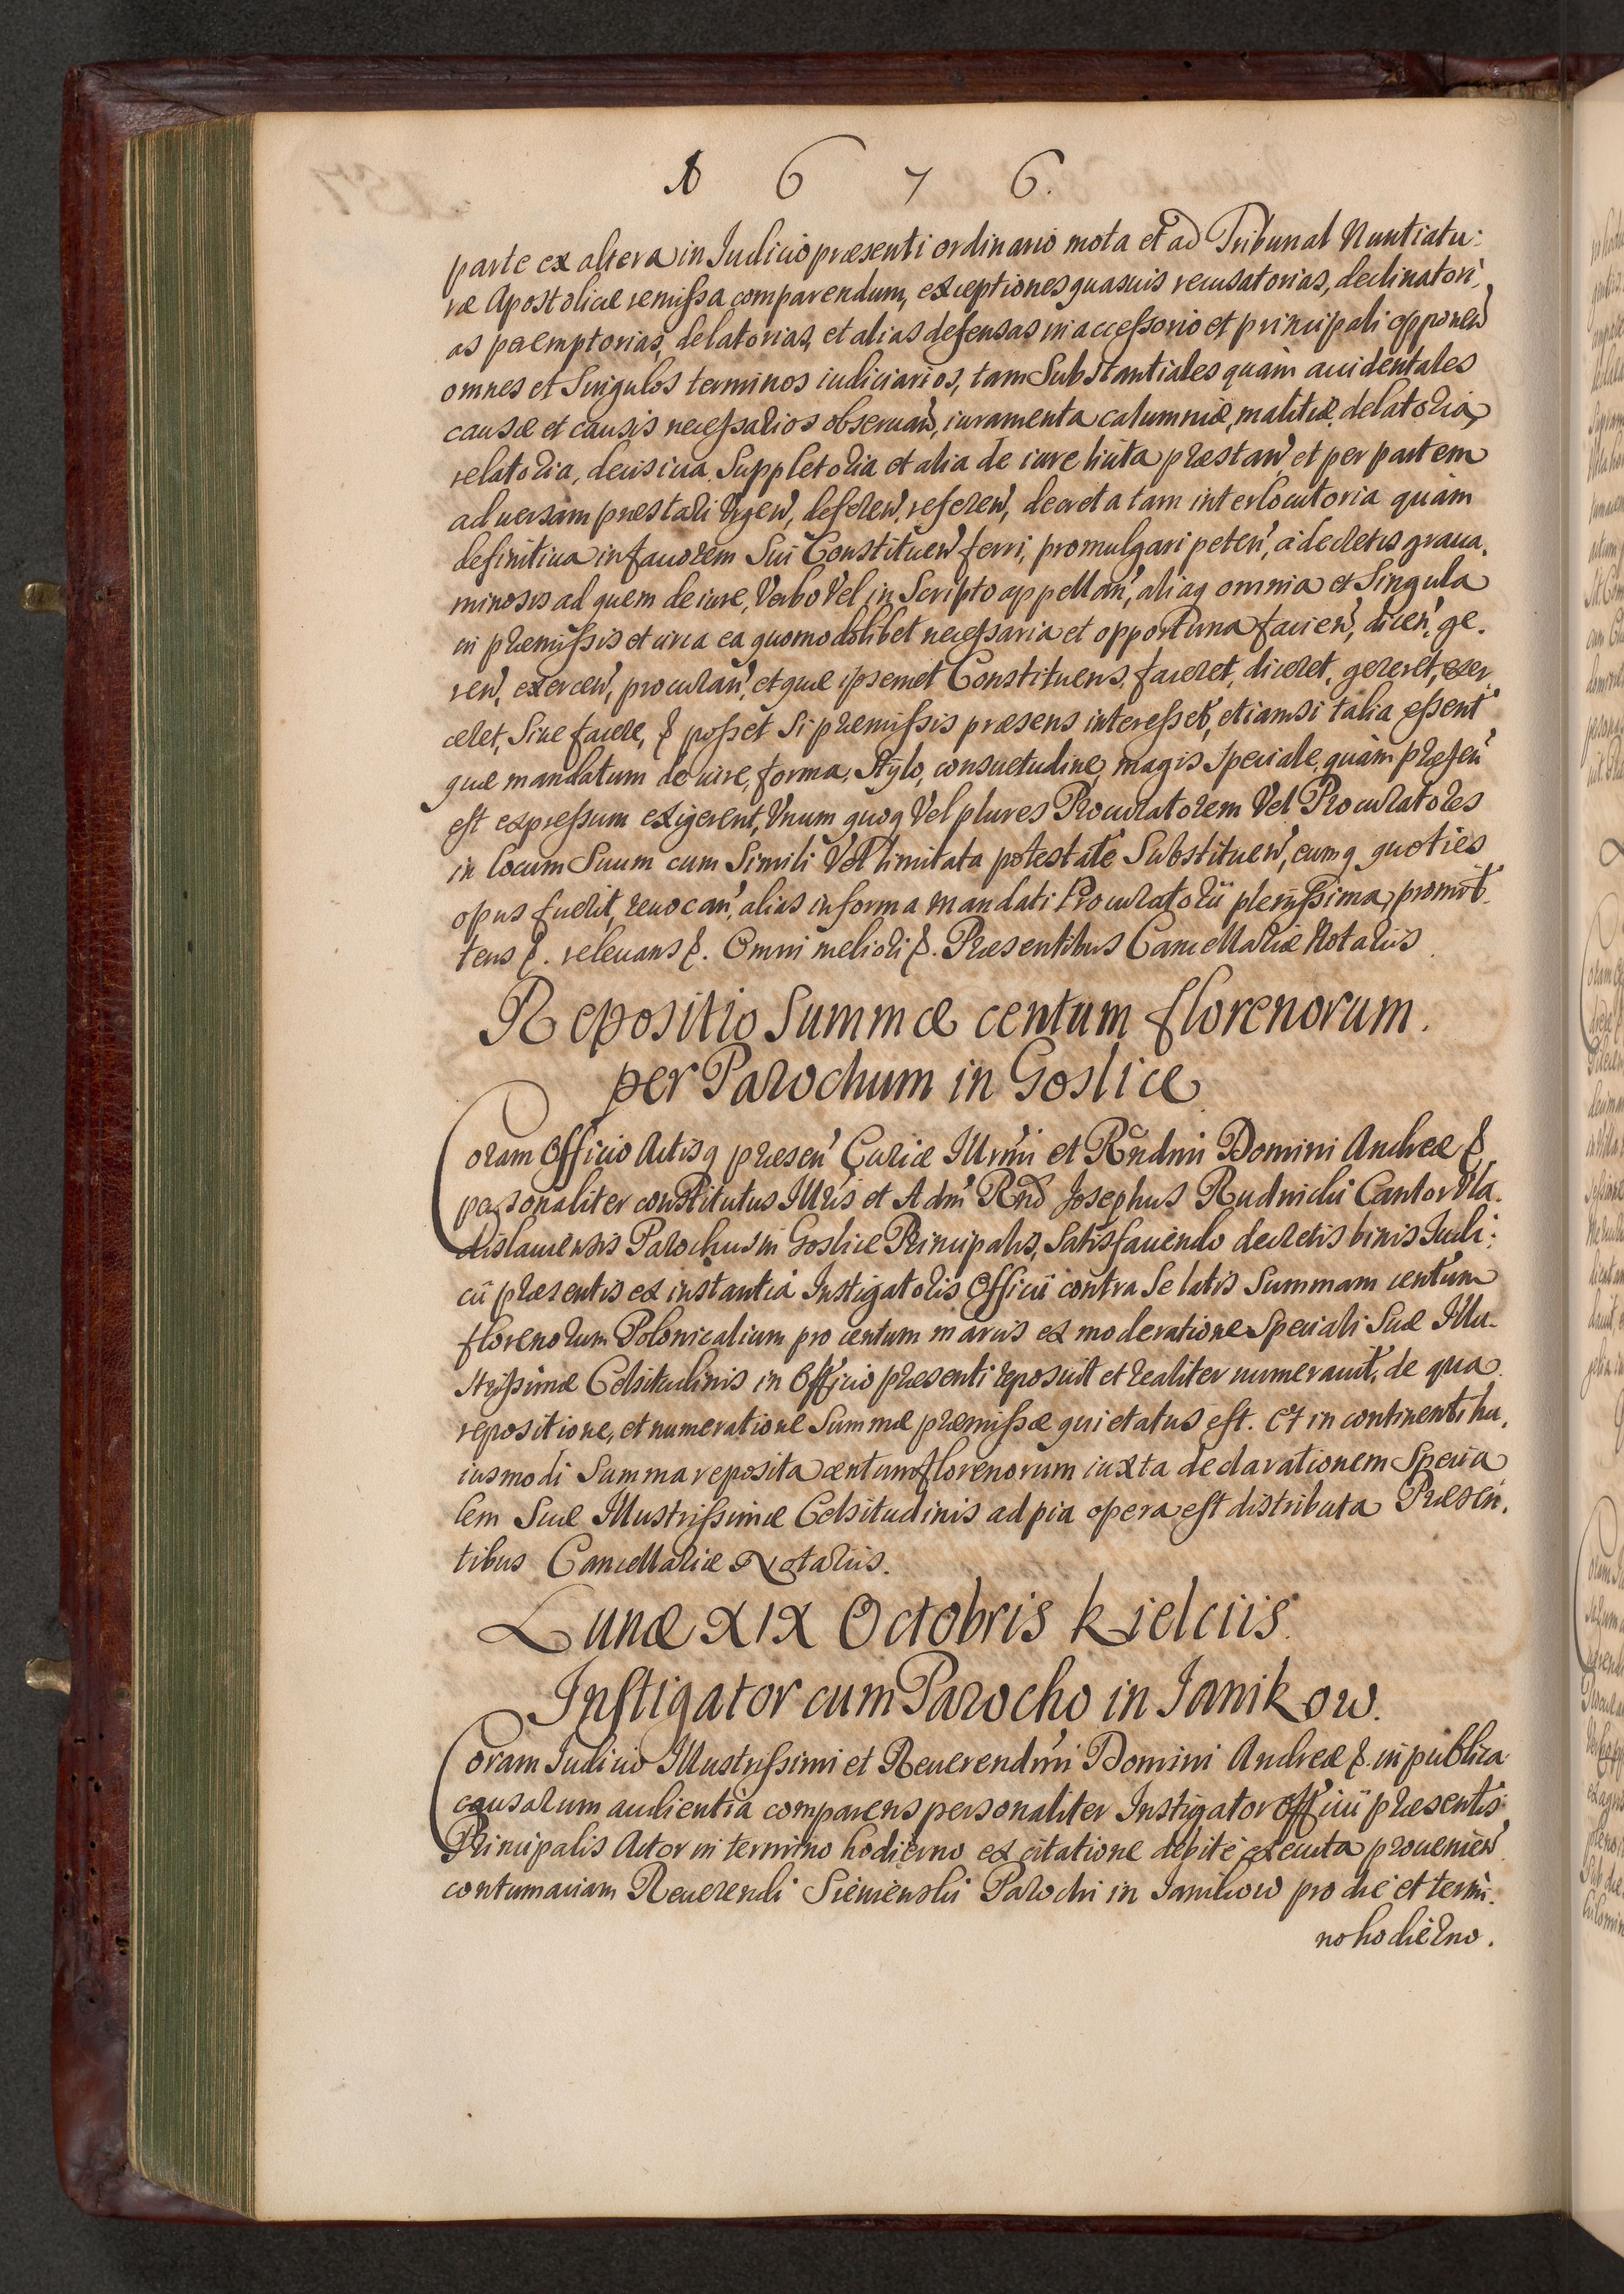 1676.
parte ex altera in Iudicio præsenti ordinario mota et ad Tribunal Nuntiatu:
ræ Apostolicæ remissa comparendum, exceptiones quasuis recusatorias, declinatori,
as peremptorias, delatorias, et alias defensas in accessorio et principali opponen̄
omnes et Singulos terminos iudiciarios, tam Substantiales quàm accidentales
causæ et causis necessarios obseruan̄, iuramenta calumniæ, malitiæ, delatoria,
relatoria, decisiua, Suppletoria et alia de iure licita præstan̄, et per partem
aduersam præstari Vrgen̄, deferen̄, referen̄, decreta tam interlocutoria quàm
definitiua in fauorem Sui Constituen̄ ferri, promulgari peten̄, à decretis graua.
minosis ad quem de iure, Verbo Vel in Scripto appellan̄, aliaq omnia et Singula
in præmissis et circa ea quomodolibet necessaria et opportuna facien̄, dicen̄, ge.
ren̄, exercen̄, procuran̄, et quæ ipsemet Constituens, faceret, diceret, gereret, exer
ceret, Siue facere, & posset Si præmissis præsens interesset, etiamsi talia essent
quæ mandatum de iure, forma, Stylo, consuetudine, magis Speciale, quàm præsen̄
est expressum exigerent, Vnum quoq Vel plures Procuratorem Vel Procuratores
in locum Suum cum Simili Vel limitata potestate Substituen̄, eumq quoties
opus fuerit, reuocan̄, alias in forma mandati Procuratorii plenissima, promit.
tens &. releuans &. Omni meliori &. Præsentibus Cancellariæ Notariis.
Repositio Summæ centum florenorum.
per Parochum in Goslice
Coram Officio Actisq præsen̄ Curiæ Illrmi et Rn̄dmi Domini Andreæ &.
personaliter constitutus Illris et Adm̄ Rn̄d Josephus Rudnicki Cantor Vla.
dislauiensis Parochus in Goslice Principalis, Satisfaciendo decretis binis Iudi:
cii præsentis ex instantia Instigatoris Officii contra Se latis Summam centum
florenorum Polonicalium pro centum marcis ex moderatione Speciali Suæ Illu-
strissimæ Celsitudinis in Officio præsenti reposuit et realiter numerauit, de qua
repositione, et numeratione Summæ præmissæ quietatus est. Et in continenti hu,
iusmodi Summa reposita centum florenorum iuxta declarationem Specia
lem Suæ Illustrissimæ Celsitudinis ad pia opera est distributa Præsen,
tibus Cancellariæ Notariis.
Lunæ XIX Octobris Kielciis.
Instigator cum Parocho in Ianikow.
Coram Iudicio Illustrissimi et Reuerendmi Domini Andreæ &. in publica
causarum audientia comparens personaliter Instigator Officii præsentis
Principalis Actor in termino hodierno ex citatione debitè executa prouenien̄
contumaciam Reuerendi Sienienski Parochi in Ianikow pro die et termi.
no hodierno.